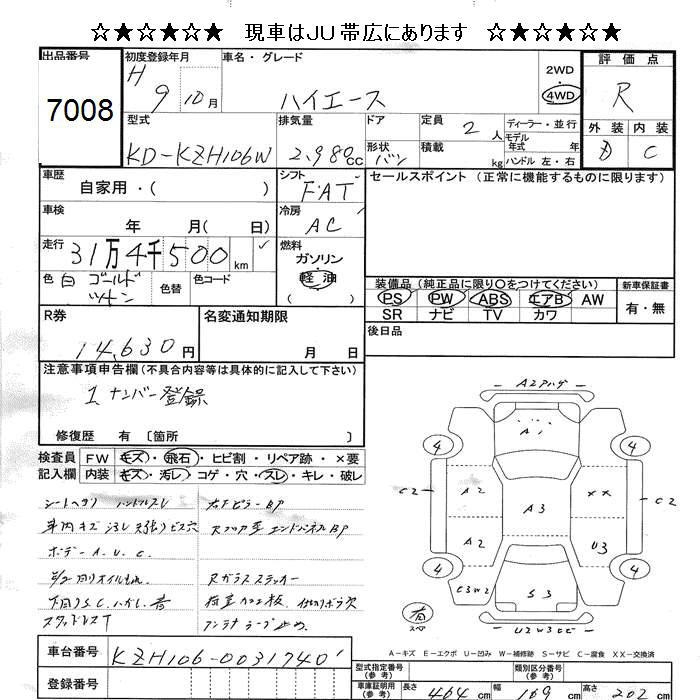 ☆★☆★☆★ 現車はJU帯広にあります ☆★☆★☆★
出品番号
7008
初度登録年月
H 9 10月
車名・グレード
ハイエース
2WD
・
4WD
評価点
R
外装 内装
D C
型式
KD-KZH106W
排気量
2,980cc
ドア
形状
バン
定員 2人
積載 kg
ディーラー・並行
モデル
年式 年
ハンドル 左・右
車歴
自家用・( )
シフト
FAT
セールスポイント(正常に機能するものに限ります)
車検
年 月( 日)
冷房
AC
走行
31万4千500km
燃料
ガソリン
軽油
( )
色 白 ゴールド
ツートン
色替
色コード
装備品(純正品に限り○をつけてください)
PS PW ABS エアB AW
SR ナビ TV カワ
新車保証書
有・無
R券
14,630円
名変通知期限
月 日
後日品
注意事項申告欄(不具合内容等は具体的に記入して下さい)
1ナンバー登録
修復歴 有〔箇所 〕
検査員
記入欄
FW キズ・飛石・ヒビ割・リペア跡・×要
内装 キズ・汚レ・コゲ・穴・スレ・キレ・破レ
シートヘタリ ハンドルスレ
車内キズ汚レ天張りビス穴
ボデーA.U.C.
下廻りS.C.ハガシ著
スタッドレスT
右Fピラー BP
エンドパネルBP
Rガラスステッカー
アンテナテープ止め.
A2
A1
4
4
C2
A2
A3
XX
C2
A2
U3
4
4
C3W2
S3
有
スペ
A-キズ E-エクボ U-凹み W-補修跡 S-サビ C-腐食 XX-交換済
車台番号
KZH106-0031740
登録番号
型式指定番号
(参考)
類別区分番号
(参考)
車庫証明用
(参考)
長さ 464cm 幅 169cm 高さ 202cm